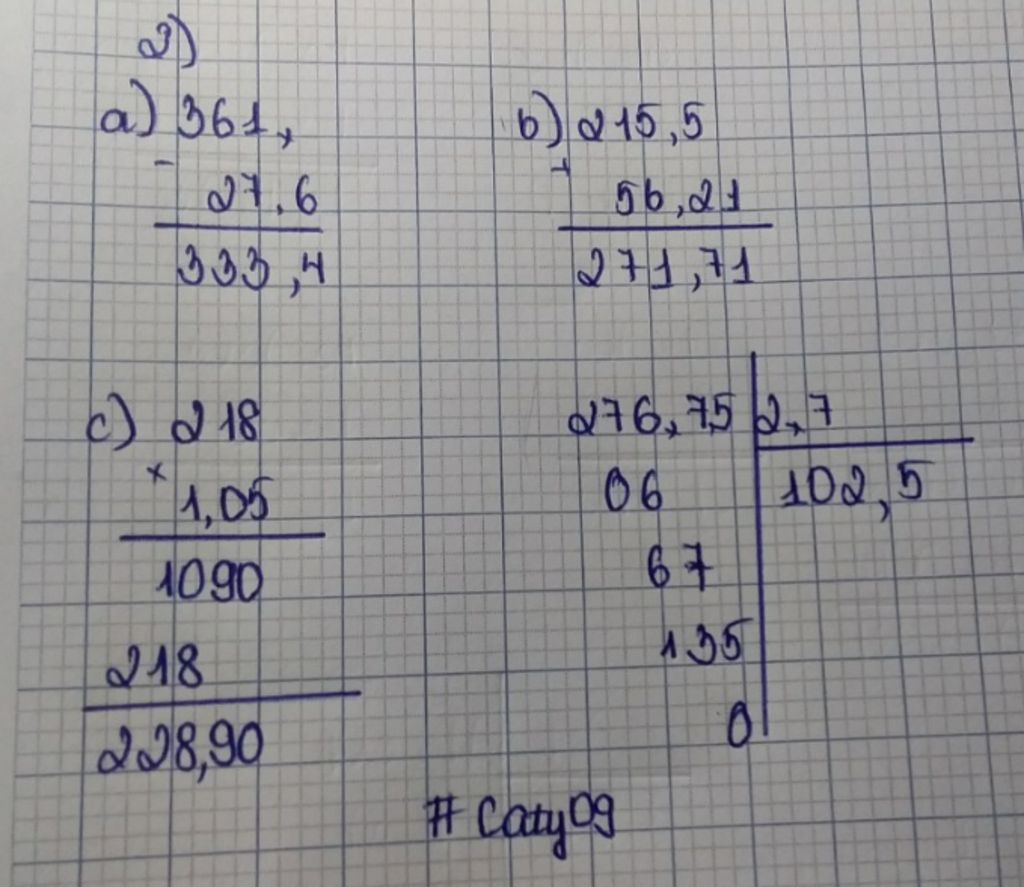 2)
a) 361,
- 27,6
333,4
b) 215,5
+ 56,21
271,71
c) 218
x 1,05
1090
218
228,90
276,75 2,7
06 102,5
67
135
0
# Caty09